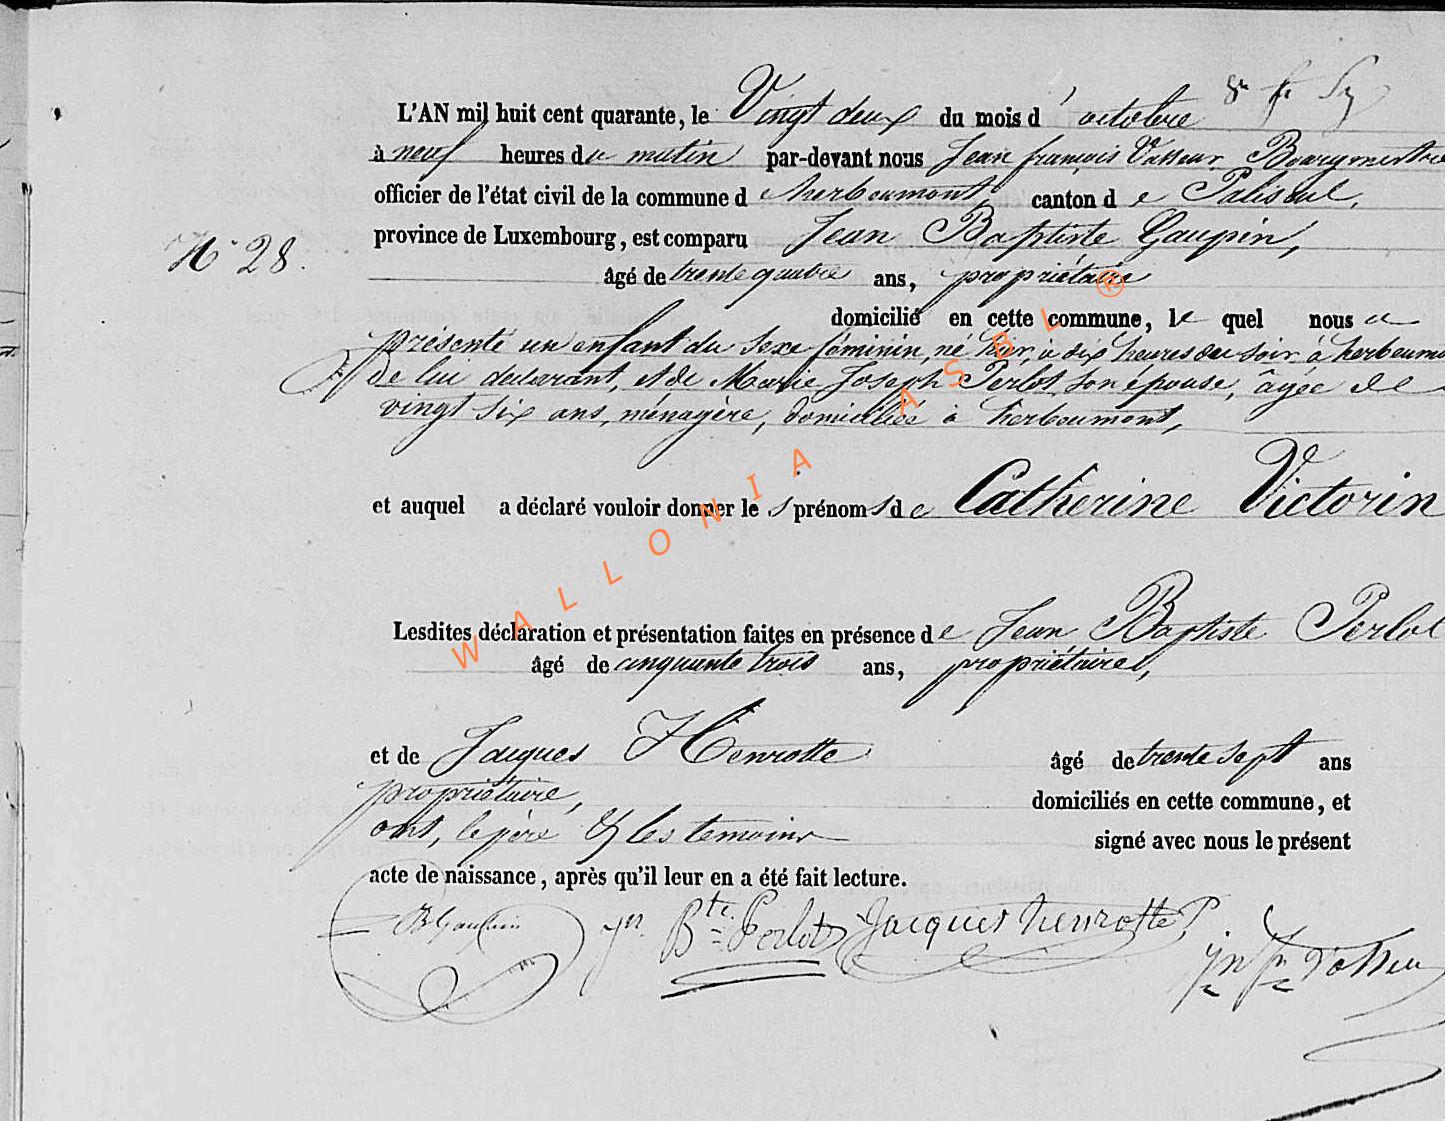 L'AN mil huit cent quarante, le Vingt deux du mois d' octobre
à neuf heures du matin par-devant nous Jean françois Vasseur Bourgmestre
officier de l'état civil de la commune d e herbeumont, canton d e Paliseul,
province de Luxembourg, est comparu Jean Baptiste Gaupin,
N° 28.
âgé de trente quatre ans, propriétaire
domicilié en cette commune, le quel nous a
présenté un enfant du sexe féminin, né hier, à dix heures du soir à herbeumo
de lui déclarant, et de Marie Joseph Perlot son épouse, âgée de
vingt six ans, ménagère, domiciliée à herbeumont,
et auquel a déclaré vouloir donner le s prénom s d e Catherine Victorin
Lesdites déclaration et présentation faites en présence de Jean Baptiste Perlot
âgé de cinquante trois ans, propriétaire,
et de Jacques Henrotte âgé de trente sept ans
propriétaire, domiciliés en cette commune, et
ont, le père & les temoins signé avec nous le présent
acte de naissance, après qu'il leur en a été fait lecture.
JBGaupin Jn Bte Perlot Jacques henrotte
WALLONIA ASBL ®